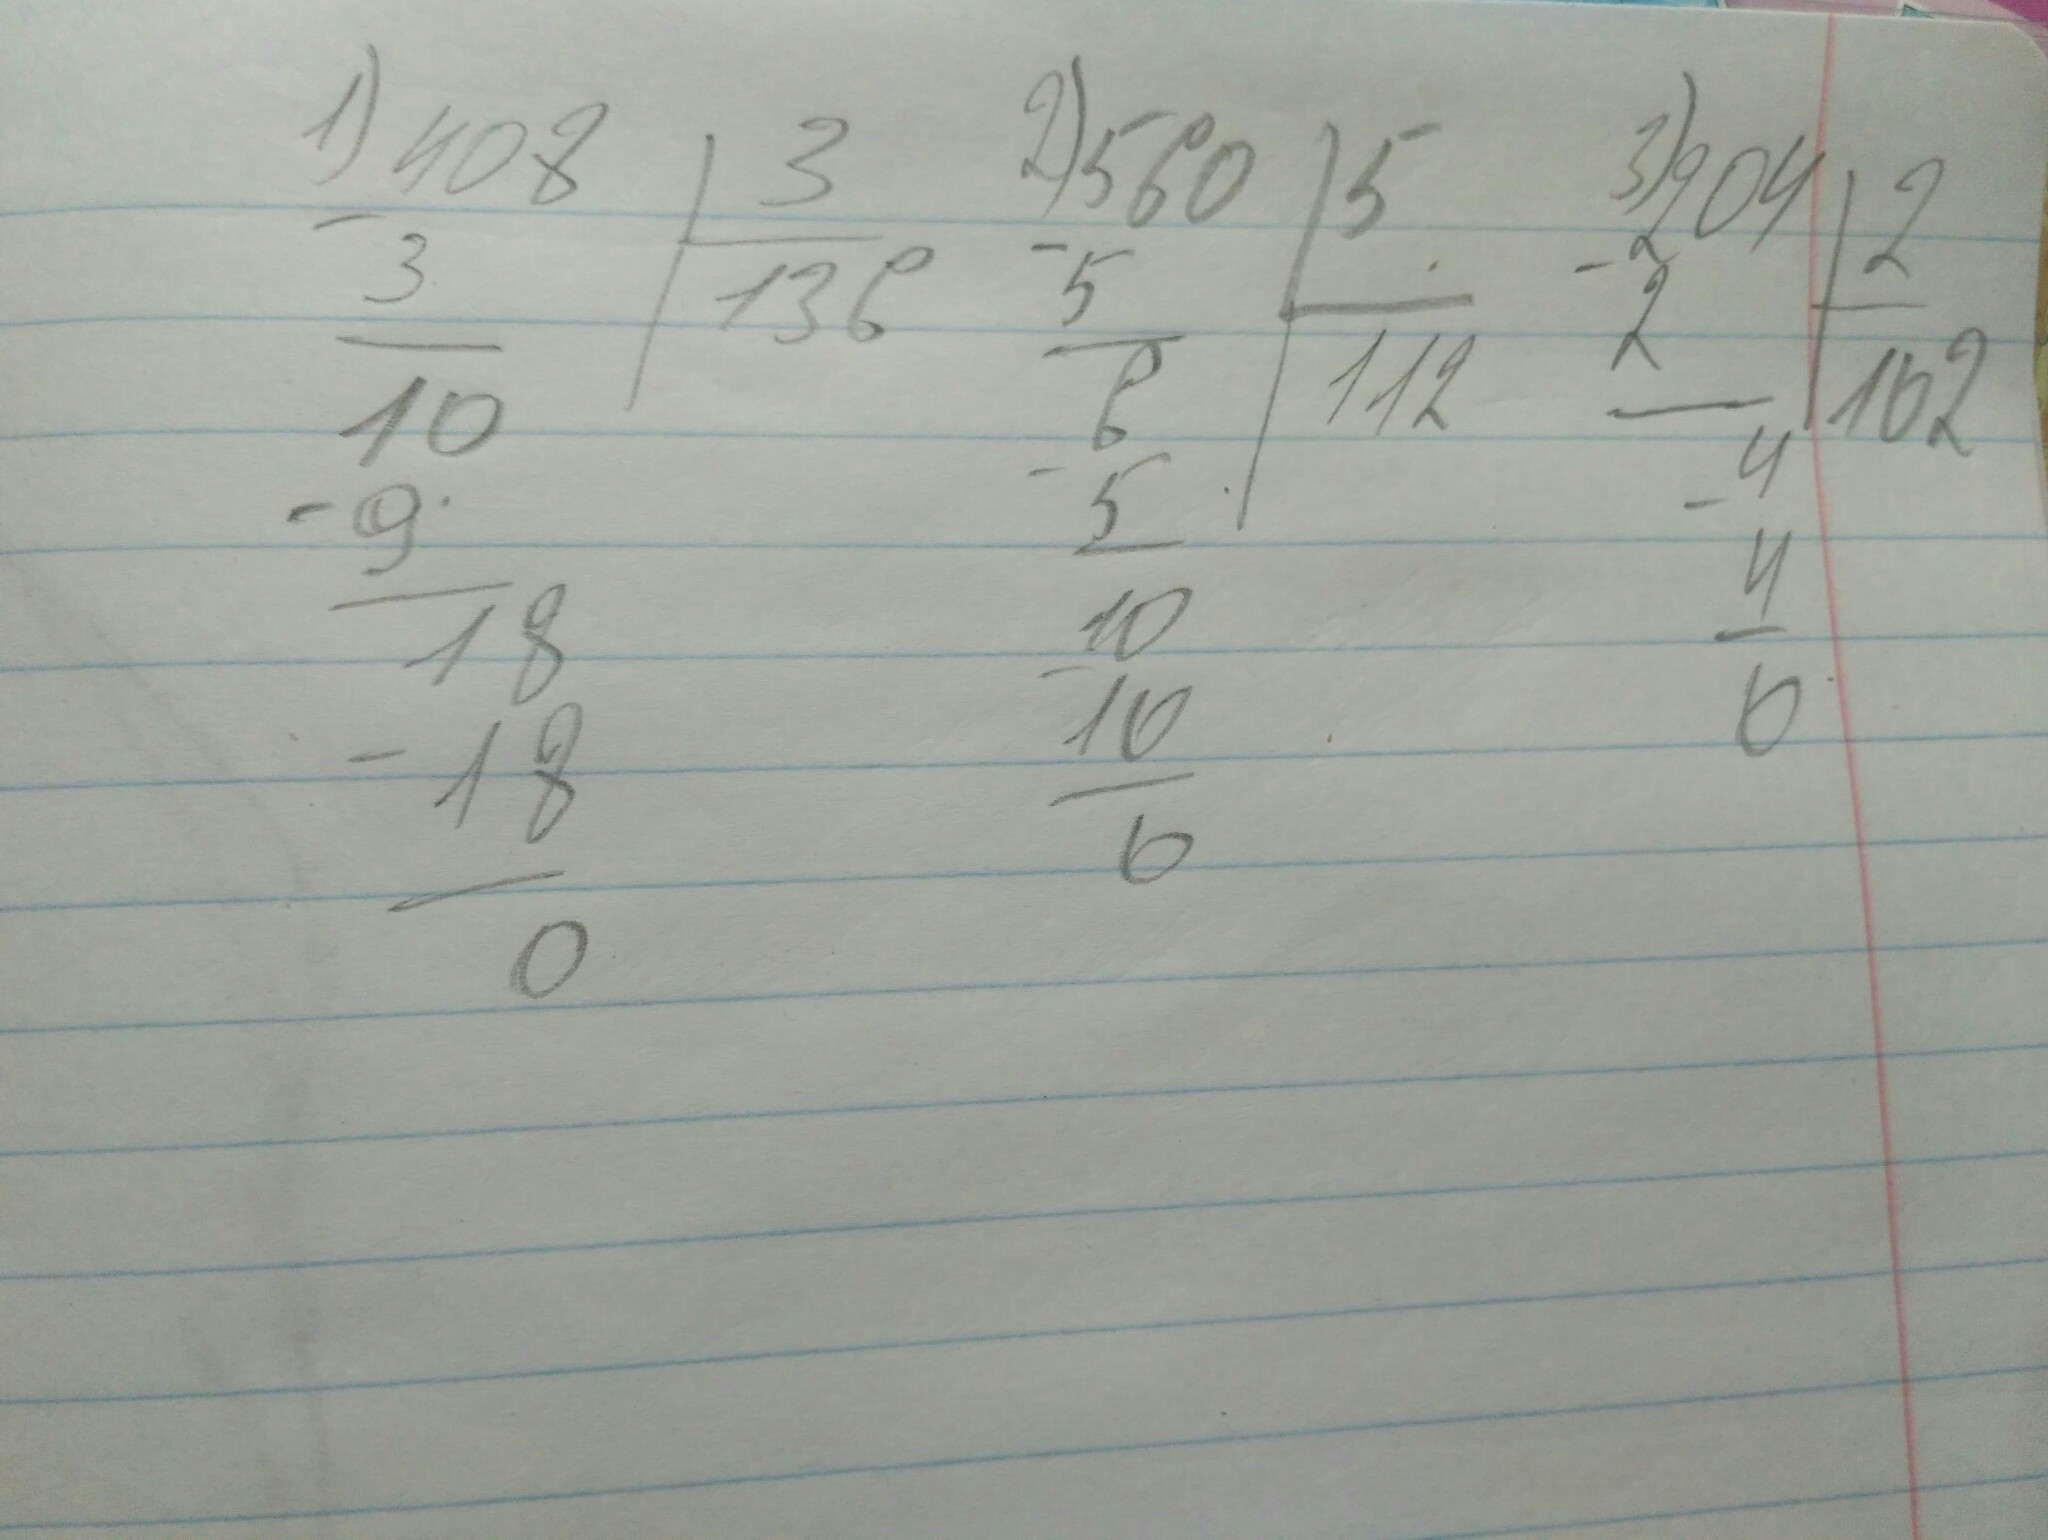 1) 408 | 3
- 3
136
10
- 9
18
- 18
0
2) 560 | 5
- 5
112
6
- 5
10
- 10
0
3) 204 | 2
- 2
102
4
- 4
0